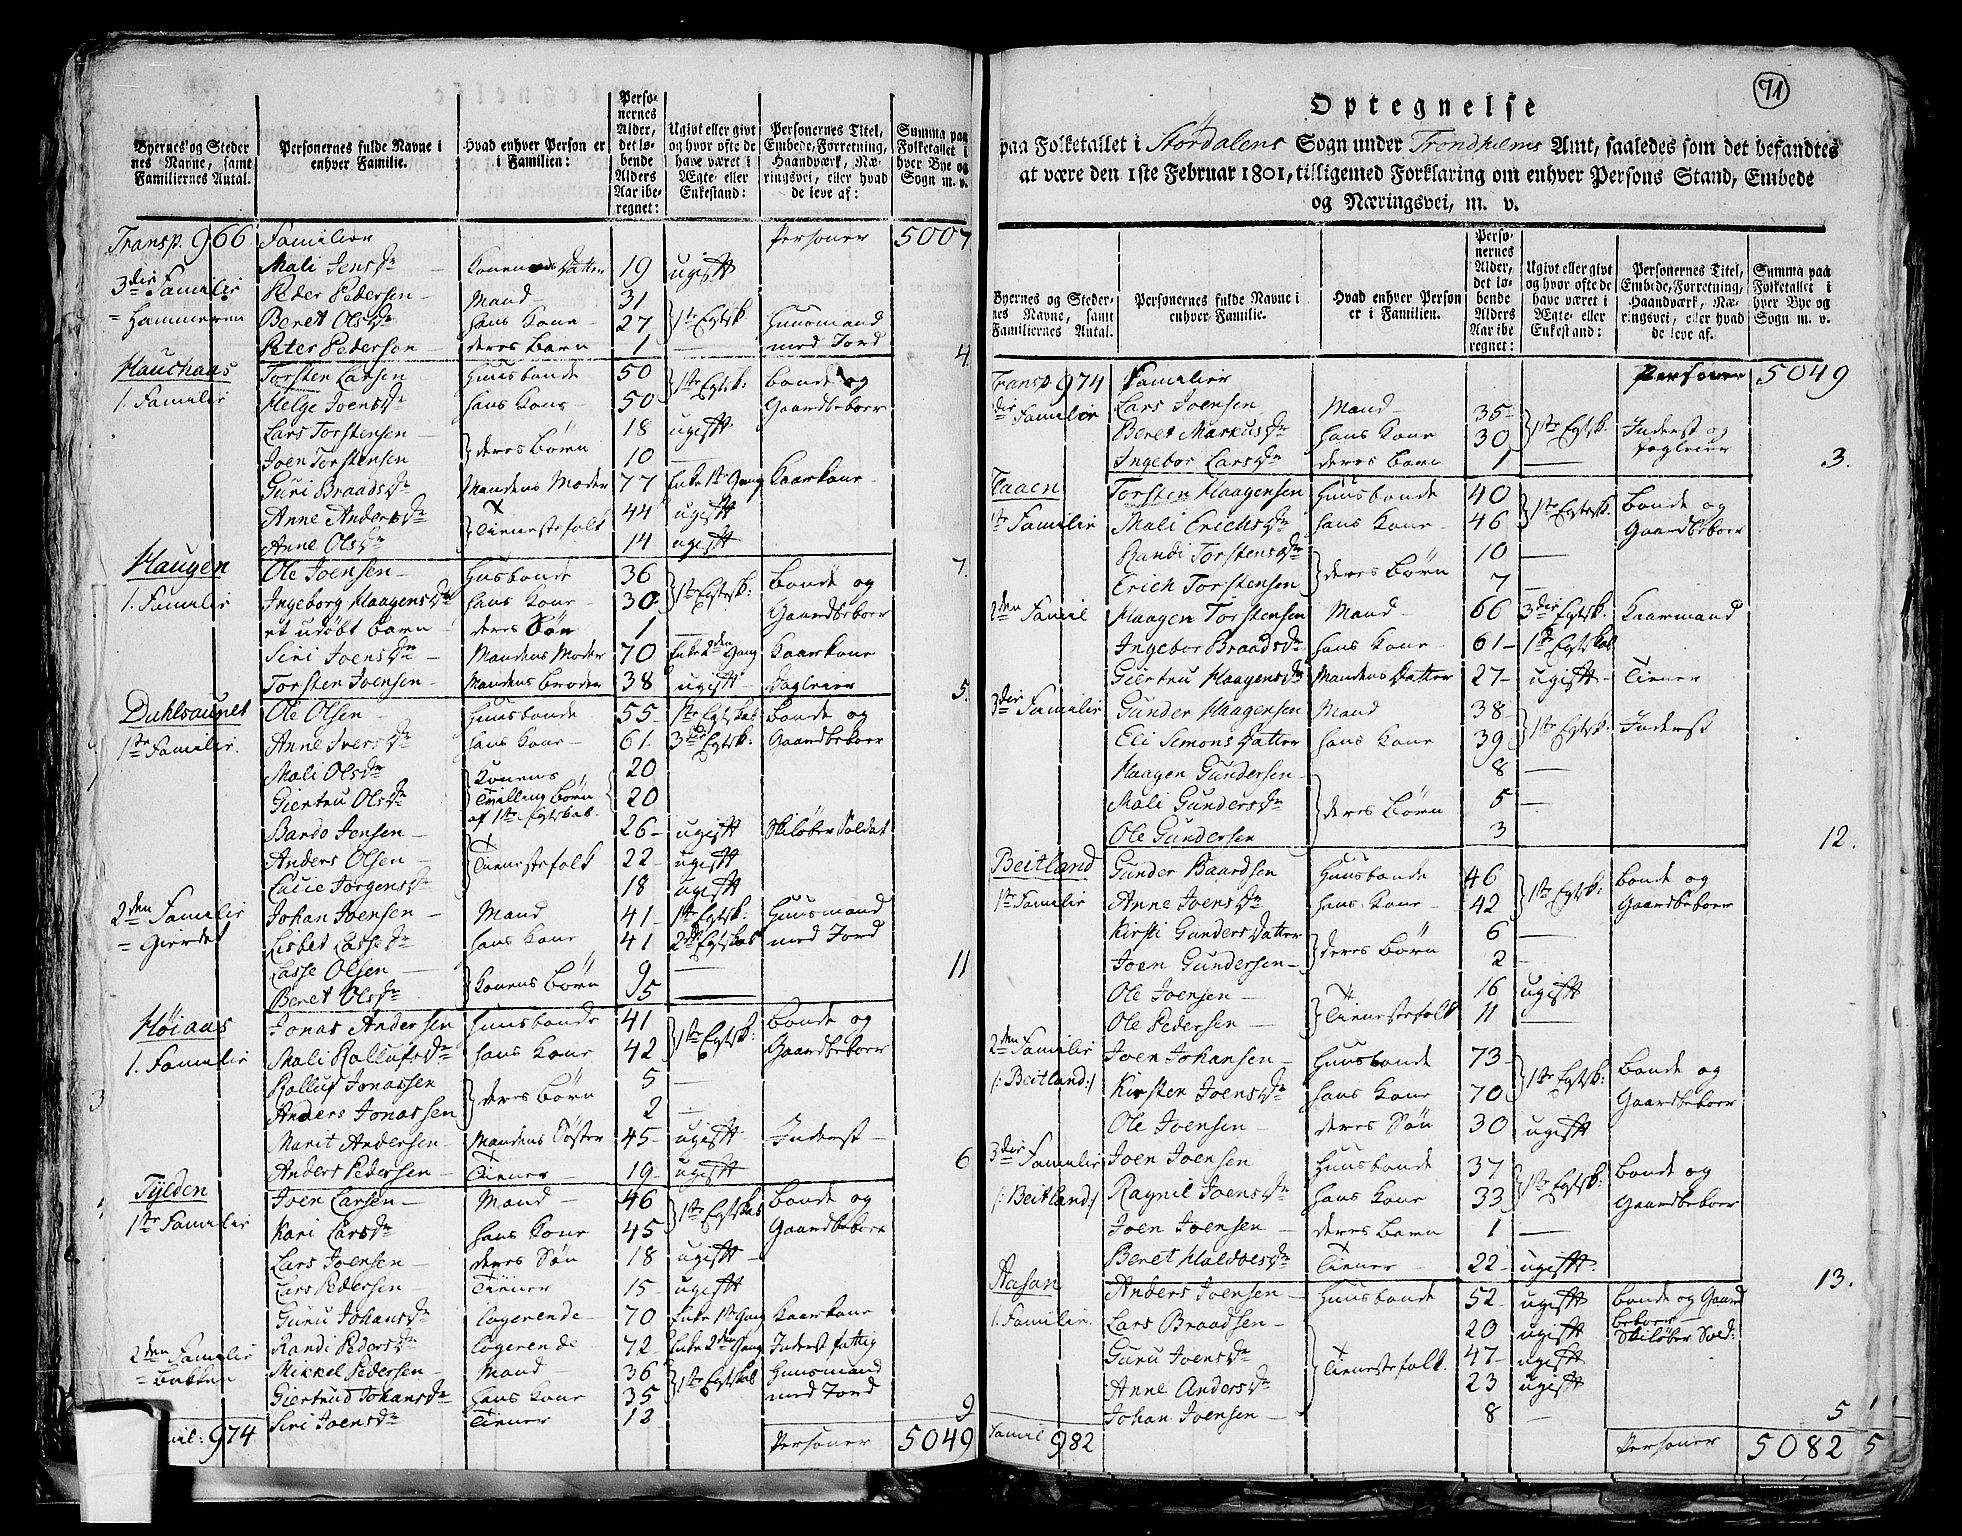 Byernes og Steder
nes Navne, samt
Familiernes Antal.
Personernes fulde Navne i
enhver Familie.
Hvad enhver Person er
i Familien:
Perso-
nernes
Alder,
det lø-
bende
Alders
Aar ibe-
regnet:
Ugivt eller givt
og hvor ofte de
have været i
Ægte- eller
Enkestand:
Personernes Titel,
Embede, Forretning,
Haandværk, Næ-
ringsvei, eller hvad
de leve af:
Summa paa
Folketallet i
hver Bye og
Sogn m. v.
Transp. 966 Familier Personer 5007
Mali Jensdr Konens Datter 19 ugift
3die Familie Peder Pedersen Mand 31 1ste Egtsk Huusmand
= Hammeren Beret Olsdr hans Kone 27 med Jord
Peter Pedersen deres Barn 1 — 4.
Hauchaas Torsten Larsen Huusbonde 50 1ste Egtsk: Bonde og
1. Familie Helge Joensdr hans Kone 50 Gaardbeboer
Lars Torstensen 18 ugift
Joen Torstensen deres Børn 10 —
Guri Braadsdr Mandens Moder 77 Enke 1ste Gang Kaarkone
Anne Andersdr Tienestefolk 44 ugift
Anne Olsdr 14 ugift 7.
Haugen Ole Joensen Husbonde 36 1ste Egtesk: Bonde og
1. Familie Ingeborg Haagensdr hans Kone 30 Gaardbeboer
et udøbt Barn deres Søn 1 —
Siri Joensdr Mandens Moder 70 Enke 2den Gang Kaarkone
Torsten Joensen Mandens Broder 38 ugift Dagleier 5.
Dahlsaunet Ole Olsen Huusbonde 55 1ste Egtskab Bonde og
1ste Familie. Anne Iversdr hans Kone 61 3die Egtsk: Gaardbeboer
Mali Olsdr Konens 20
Giertru Olsdr Tvilling Børn 20
af 1ste Egtskab.
Bardo Jensen 26 ugift Skiløber Soldat
Anders Olsen Tienestefolk 22 ugift
Lucie Jørgensdr 18 ugift
2den Familie Johan Joensen Mand 41 1ste Egtsk: Huusmand
= Gierdet Lisbet Lassedr hans Kone 41 2det Egtskab med Jord
Lasse Olsen Konens Børn 9 — 11
Beret Olsdr 5 —
Høiaas Jonas Andersen Huusbonde 41 1ste Egtsk: Bonde og
1. Familie Mali Rollufsdr hans Kone 42 Gaardbeboer
Rolluf Jonassen deres Børn 5 —
Anders Jonassen 2 —
Marit Andersen Mandens Søster 45 ugift Inderst
Anders Pedersen Tiener 19 ugift 6
Tylden Joen Larsen Mand 46 1ste Egtskab Bonde og
1ste Familie Kari Larsdr hans Kone 45 Gaardbeboer
Lars Joensen deres Søn 18 ugift
Lars Pedersen Tiener 15 ugift
Guru Johansdr Logerende 70 Enke 1ste Gang Kaarkone
Randi Pedersdr Logerende 72 Enke 2den Gang Inderst fattig
2den Familie Mikkel Pedersen Mand 36 1ste Egtskab Huusmand
= Bakken Giertrud Johansdr hans Kone 35 med Jord
Siri Joensdr Tiener 12 9
Famil: 974 Personer 5049
91
Optegnelse
paa Folketallet i Stördalens Sogn under Trondhiems Amt, saaledes som det befandtes
at være den 1ste Februar 1801, tilligemed Forklaring om enhver Persons Stand, Embede
og Næringsvei, m. v.
Byernes og Steder-
nes Navne, samt
Familiernes Antal.
Personernes fulde Navne i
enhver Familie.
Hvad enhver Person
er i Familien.
Perso-
nernes
Alder,
det lø-
bende
Alders
Aar ibe-
regnet:
Ugivt eller givt
og hvor ofte de
have været i
Ægte- eller
Enkestand:
Personernes Titel,
Embede, Forretning,
Haandværk, Næ-
ringsvei, eller hvad
de leve af.
Summa paa
Folketallet i
hver Bye og
Sogn m. v.
Transp 974 Familier Personer 5049
die Familie Lars Joensen Mand 35 1ste Egtsk. Inderst og
Beret Markusdr hans Kone 30 Dagleier
Ingebor Larsdr deres Barn 1 — 3.
Torsten Haagensen Huusbonde 40 1ste Egtesk. Bonde og
1ste Familie Mali Erichsdr hans Kone 46 Gaardbeboer
Randi Torstensdr deres Børn 10 —
Erich Torstensen 7 —
2den Famil Haagen Torstensen Mand 66 3die Egtsk. Kaarmand
Ingebor Braadsdr hans Kone 61 1ste Egtskab
Giertru Haagensdr Mandens Datter 27 ugift Tiener
3die Familie Gunder Haagensen Mand 38 1ste Egtsk: Inderst
Eli Simons Datter hans Kone 39
Haagen Gundersen 8 —
Mali Gundersdr deres Børn 5 —
Ole Gundersen 3 12.
Beitland Gunder Baardsen Huusbonde 46 1ste Egtsk: Bonde og
1ste Familie Anne Joensdr hans Kone 42 Gaardbeboer
Kirsti Gunders Datter deres Børn 6 —
Joen Gundersen 2 —
Ole Joensen Tienestefolk 16 ugift
Ole Pedersen 11 —
2den Familie Joen Johansen Huusbonde 73 1ste Egtsk: Bonde og
(: Beitland :) Kirsten Joensdr hans Kone 70 Gaardbeboer
Ole Joensen deres Søn 30 ugift
3die Familie Joen Joensen Huusbonde 37 1ste Egtsk: Bonde og
(: Beitland :) Ragnil Joensdr hans Kone 33 Gaardbeboer
Joen Joensen deres Barn 1 —
Beret Haldoesdr Tiener 22 ugift. 13.
Aasan Anders Joensen Huusbonde 52 ugift Bonde og Gaard
beboer
1. Familie. Lars Braadsen 20 ugift Skiløber Sold:
Guru Joensdr Tienestefolk. 47 ugift
Anne Andersdr 23 ugift
Johan Joensen 8 — 5
Famil 982 Personer 5082 5